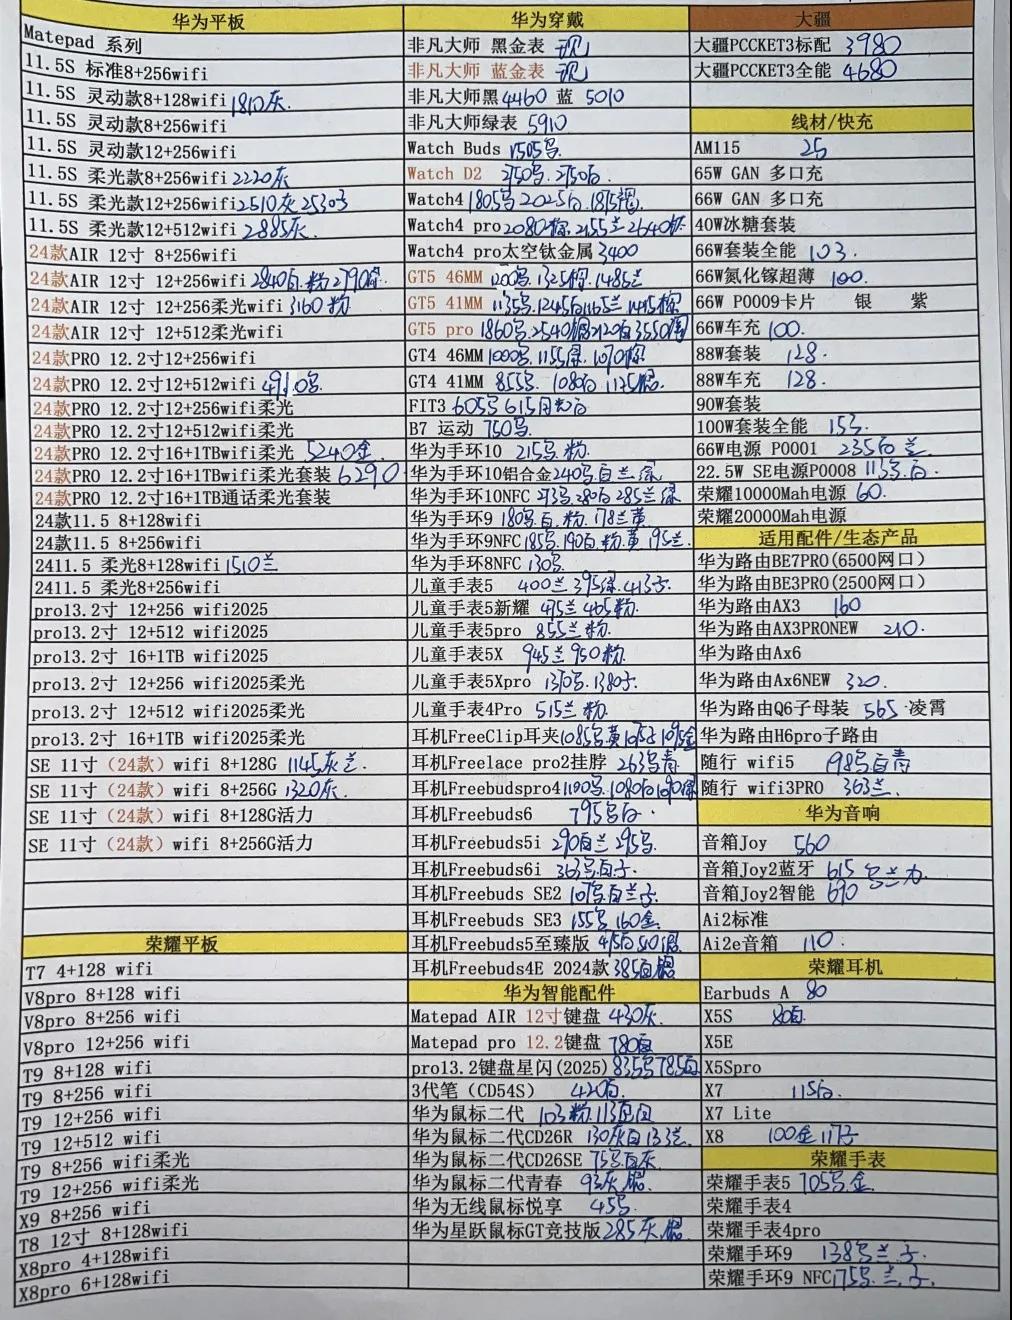 华为平板
Matepad 系列
11.5S 标准8+256wifi
11.5S 灵动款8+128wifi 1810灰.
11.5S 灵动款8+256wifi
11.5S 灵动款12+256wifi
11.5S 柔光款8+256wifi 2220灰
11.5S 柔光款12+256wifi 2510灰 2530
11.5S 柔光款12+512wifi 2885灰.
24款AIR 12寸 8+256wifi
24款AIR 12寸 12+256wifi 2840白.粉 2790
24款AIR 12寸 12+256柔光wifi 3160 粉
24款AIR 12寸 12+512柔光wifi
24款PRO 12.2寸12+256wifi
24款PRO 12.2寸12+512wifi 4910
24款PRO 12.2寸12+256wifi柔光
24款PRO 12.2寸12+512wifi柔光
24款PRO 12.2寸16+1TBwifi柔光 5240金
24款PRO 12.2寸16+1TBwifi柔光套装 6290
24款PRO 12.2寸16+1TB通话柔光套装
24款11.5 8+128wifi
24款11.5 8+256wifi
2411.5 柔光8+128wifi 1510兰
2411.5 柔光8+256wifi
pro13.2寸 12+256 wifi2025
pro13.2寸 12+512 wifi2025
pro13.2寸 16+1TB wifi2025
pro13.2寸 12+256 wifi2025柔光
pro13.2寸 12+512 wifi2025柔光
pro13.2寸 16+1TB wifi2025柔光
SE 11寸（24款）wifi 8+128G 1145灰兰
SE 11寸（24款）wifi 8+256G 1320灰.
SE 11寸（24款）wifi 8+128G活力
SE 11寸（24款）wifi 8+256G活力
荣耀平板
T7 4+128 wifi
V8pro 8+128 wifi
V8pro 8+256 wifi
V8pro 12+256 wifi
T9 8+128 wifi
T9 8+256 wifi
T9 12+256 wifi
T9 12+512 wifi
T9 8+256 wifi柔光
T9 12+256 wifi柔光
X9 8+256 wifi
T8 12寸 8+128wifi
X8pro 4+128wifi
X8pro 6+128wifi
华为穿戴
非凡大师 黑金表 现
非凡大师 蓝金表 现
非凡大师黑4460 蓝 5010
非凡大师绿表 5910
Watch Buds 1505
Watch D2
Watch4 1805
Watch4 pro 2080
Watch4 pro太空钛金属 3400
GT5 46MM 1200
GT5 41MM 1135
GT5 pro 1860
GT4 46MM 1000
GT4 41MM 855
FIT3 605 615
B7 运动 750
华为手环10 215 粉
华为手环10铝合金 240 白兰绿
华为手环10NFC 273 280白 285兰绿
华为手环9 180 白.粉 178兰黄
华为手环9NFC 185 190白.粉.黄 195兰.
华为手环8NFC 130
儿童手表5 400兰 395绿 413
儿童手表5新耀 475兰 465粉
儿童手表5pro 855兰粉.
儿童手表5X 945兰 950粉.
儿童手表5Xpro 1370 1380
儿童手表4Pro 515兰 粉.
耳机FreeClip耳夹 1085
耳机Freelace pro2挂脖 263 青
耳机Freebudspro4 1190
耳机Freebuds6 795 白
耳机Freebuds5i 290白兰 295
耳机Freebuds6i 363 白
耳机Freebuds SE2 107 白兰
耳机Freebuds SE3 155 160金.
耳机Freebuds5至臻版 415白 510
耳机Freebuds4E 2024款 385白
华为智能配件
Matepad AIR 12寸键盘 430灰.
Matepad pro 12.2键盘 780白
pro13.2键盘星闪(2025) 835 785白
3代笔（CD54S） 420白.
华为鼠标二代 103粉 113
华为鼠标二代CD26R 130灰白 133兰.
华为鼠标二代CD26SE 75 白灰
华为鼠标二代青春 93灰
华为无线鼠标悦享 45
华为星跃鼠标GT竞技版 285灰
大疆
大疆PCCKET3标配 3980
大疆PCCKET3全能 4680
线材/快充
AM115 25
65W GAN 多口充
66W GAN 多口充
40W冰糖套装
66W套装全能 103.
66W氮化镓超薄 100.
66W P0009卡片 银 紫
66W车充 100.
88W套装 128.
88W车充 128.
90W套装
100W套装全能 153.
66W电源 P0001 235白兰
22.5W SE电源P0008 113 白.
荣耀10000Mah电源 60.
荣耀20000Mah电源
适用配件/生态产品
华为路由BE7PRO(6500网口)
华为路由BE3PRO(2500网口)
华为路由AX3 160
华为路由AX3PRONEW 210.
华为路由Ax6
华为路由Ax6NEW 320.
华为路由Q6子母装 565 凌霄
华为路由H6pro子路由
随行 wifi5 198 白青
随行 wifi3PRO 363兰.
华为音响
音箱Joy 560
音箱Joy2蓝牙 615
音箱Joy2智能 690
Ai2标准
Ai2e音箱 110.
荣耀耳机
Earbuds A 80
X5S 80白
X5E
X5Spro
X7 115白.
X7 Lite
X8 100金 117
荣耀手表
荣耀手表5 705 金
荣耀手表4
荣耀手表4pro
荣耀手环9 138 兰
荣耀手环9 NFC 175 兰